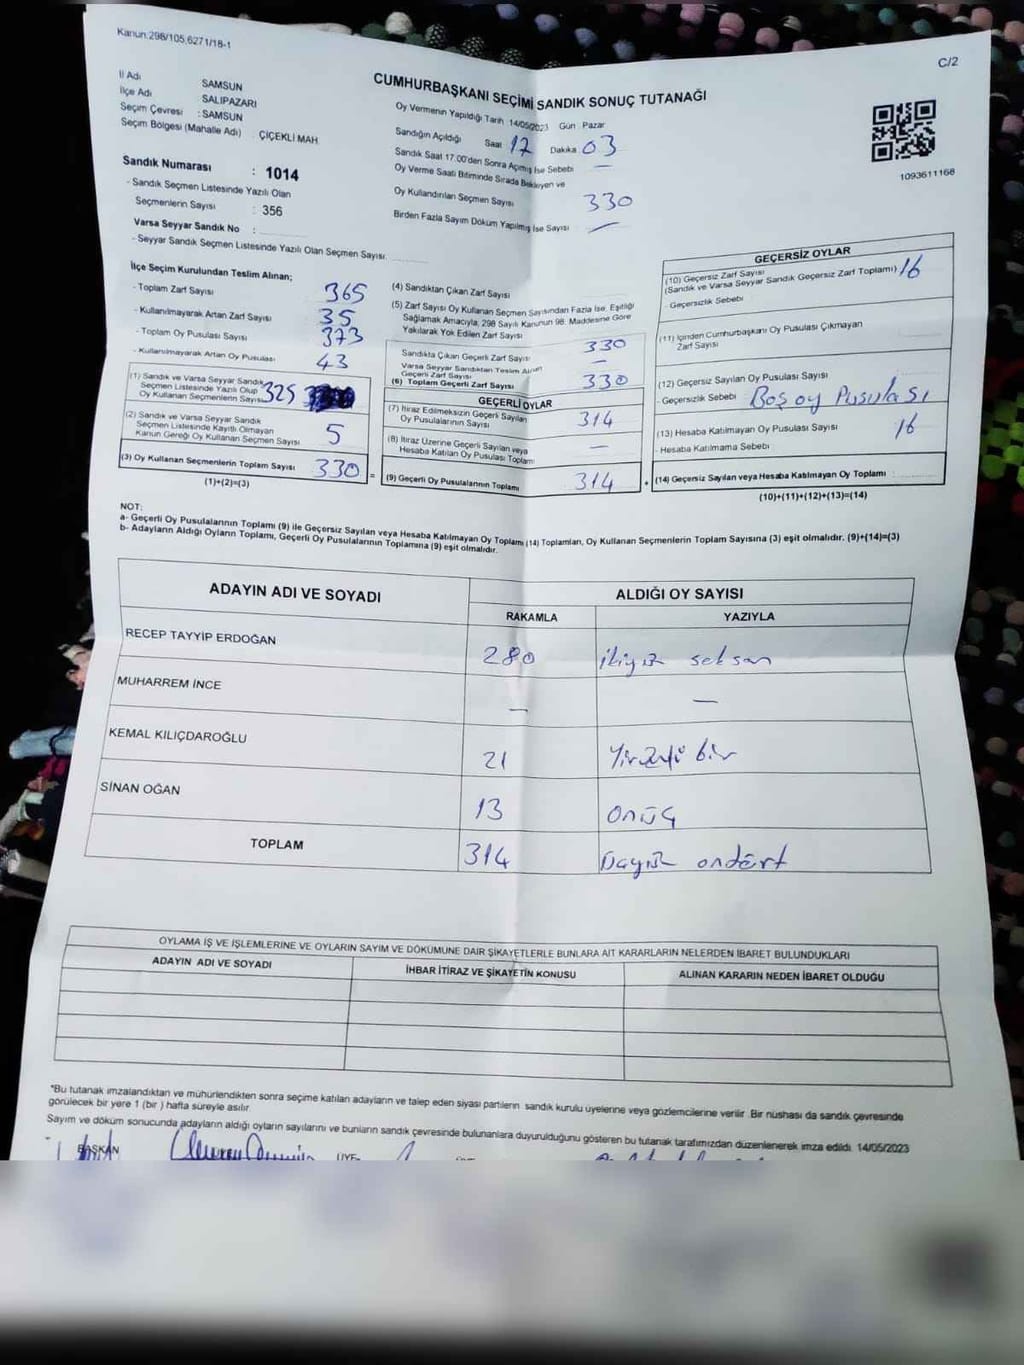 Kanun:298/105,6271/18-1
C/2
CUMHURBAŞKANI SEÇİMİ SANDIK SONUÇ TUTANAĞI
İl Adı SAMSUN
İlçe Adı SALIPAZARI
Seçim Çevresi : SAMSUN
Seçim Bölgesi (Mahalle Adı) : ÇİÇEKLİ MAH
Sandık Numarası : 1014
- Sandık Seçmen Listesinde Yazılı Olan
Seçmenlerin Sayısı : 356
Varsa Seyyar Sandık No :
- Seyyar Sandık Seçmen Listesinde Yazılı Olan Seçmen Sayısı:
Oy Vermenin Yapıldığı Tarih 14/05/2023 Gün Pazar
Sandığın Açıldığı Saat 17 Dakika 03
Sandık Saat 17.00'den Sonra Açılmış İse Sebebi —
Oy Verme Saati Bitiminde Sırada Bekleyen ve
Oy Kullandırılan Seçmen Sayısı 330
Birden Fazla Sayım Döküm Yapılmış İse Sayısı —
1093611168
İlçe Seçim Kurulundan Teslim Alınan;
- Toplam Zarf Sayısı 365
- Kullanılmayarak Artan Zarf Sayısı 35
- Toplam Oy Pusulası Sayısı 373
- Kullanılmayarak Artan Oy Pusulası 43
(1) Sandık ve Varsa Seyyar Sandık
Seçmen Listesinde Yazılı Olup
Oy Kullanan Seçmenlerin Sayısı 325
(2) Sandık ve Varsa Seyyar Sandık
Seçmen Listesinde Kayıtlı Olmayan
Kanun Gereği Oy Kullanan Seçmen Sayısı 5
(3) Oy Kullanan Seçmenlerin Toplam Sayısı 330 =
(1)+(2)=(3)
(4) Sandıktan Çıkan Zarf Sayısı
(5) Zarf Sayısı Oy Kullanan Seçmen Sayısından Fazla İse, Eşitliği
Sağlamak Amacıyla, 298 Sayılı Kanunun 98. Maddesine Göre
Yakılarak Yok Edilen Zarf Sayısı
Sandıkta Çıkan Geçerli Zarf Sayısı 330
Varsa Seyyar Sandıktan Teslim Alınan
Geçerli Zarf Sayısı —
(6) Toplam Geçerli Zarf Sayısı 330
GEÇERLİ OYLAR
(7) İtiraz Edilmeksizin Geçerli Sayılan
Oy Pusulalarının Sayısı 314
(8) İtiraz Üzerine Geçerli Sayılan veya
Hesaba Katılan Oy Pusulası Toplamı —
(9) Geçerli Oy Pusulalarının Toplamı 314 +
GEÇERSİZ OYLAR
(10) Geçersiz Zarf Sayısı
(Sandık ve Varsa Seyyar Sandık Geçersiz Zarf Toplamı) 16
- Geçersizlik Sebebi
(11) İçinden Cumhurbaşkanı Oy Pusulası Çıkmayan
Zarf Sayısı
(12) Geçersiz Sayılan Oy Pusulası Sayısı
- Geçersizlik Sebebi Boş oy Pusulası
(13) Hesaba Katılmayan Oy Pusulası Sayısı 16
- Hesaba Katılmama Sebebi
(14) Geçersiz Sayılan veya Hesaba Katılmayan Oy Toplamı
(10)+(11)+(12)+(13)=(14)
NOT:
a- Geçerli Oy Pusulalarının Toplamı (9) ile Geçersiz Sayılan veya Hesaba Katılmayan Oy Toplamı (14) Toplamları, Oy Kullanan Seçmenlerin Toplam Sayısına (3) eşit olmalıdır. (9)+(14)=(3)
b- Adayların Aldığı Oyların Toplamı, Geçerli Oy Pusulalarının Toplamına (9) eşit olmalıdır.
ADAYIN ADI VE SOYADI ALDIĞI OY SAYISI
RAKAMLA YAZIYLA
RECEP TAYYİP ERDOĞAN 280 ikiyüz seksan
MUHARREM İNCE — —
KEMAL KILIÇDAROĞLU 21 Yirmi bir
SİNAN OĞAN 13 onüç
TOPLAM 314 Üçyüz ondört
OYLAMA İŞ VE İŞLEMLERİNE VE OYLARIN SAYIM VE DÖKÜMÜNE DAİR ŞİKAYETLERLE BUNLARA AİT KARARLARIN NELERDEN İBARET BULUNDUKLARI
ADAYIN ADI VE SOYADI İHBAR İTİRAZ VE ŞİKAYETİN KONUSU ALINAN KARARIN NEDEN İBARET OLDUĞU
*Bu tutanak imzalandıktan ve mühürlendikten sonra seçime katılan adayların ve talep eden siyasi partilerin sandık kurulu üyelerine veya gözlemcilerine verilir. Bir nüshası da sandık çevresinde
görülecek bir yere 1 (bir ) hafta süreyle asılır.
Sayım ve döküm sonucunda adayların aldığı oyların sayılarını ve bunların sandık çevresinde bulunanlara duyurulduğunu gösteren bu tutanak tarafımızdan düzenlenerek imza edildi. 14/05/2023
BAŞKAN ÜYE